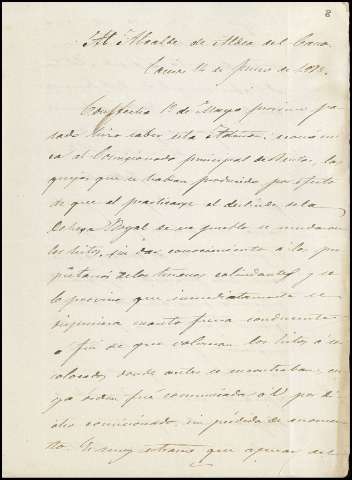 8
Al Alcalde de Aldea del Cano
Cáceres 14 de Junio de 1872.
Con fecha 1º de Mayo próximo pa-
sado hizo saber esta Admon. económi-
ca al Comisionado principal de Ventas, las
quejas que se habian producido por efecto
de que al practicarse el deslinde de la
Dehesa Boyal de ese pueblo se mudaron
los hitos, sin dar conocimiento á los pro-
pietarios de los terrenos colindantes y se
le previno que inmediatamente se
dispusiera cuanto fuera conducente
á fin de que volvieran los hitos á ser
colocados donde antes se encontraban; cu-
ya orden fué comunicada á V. por di-
cho comisionado, sin pérdida de momen-
to. Es muy estraño que apesar de